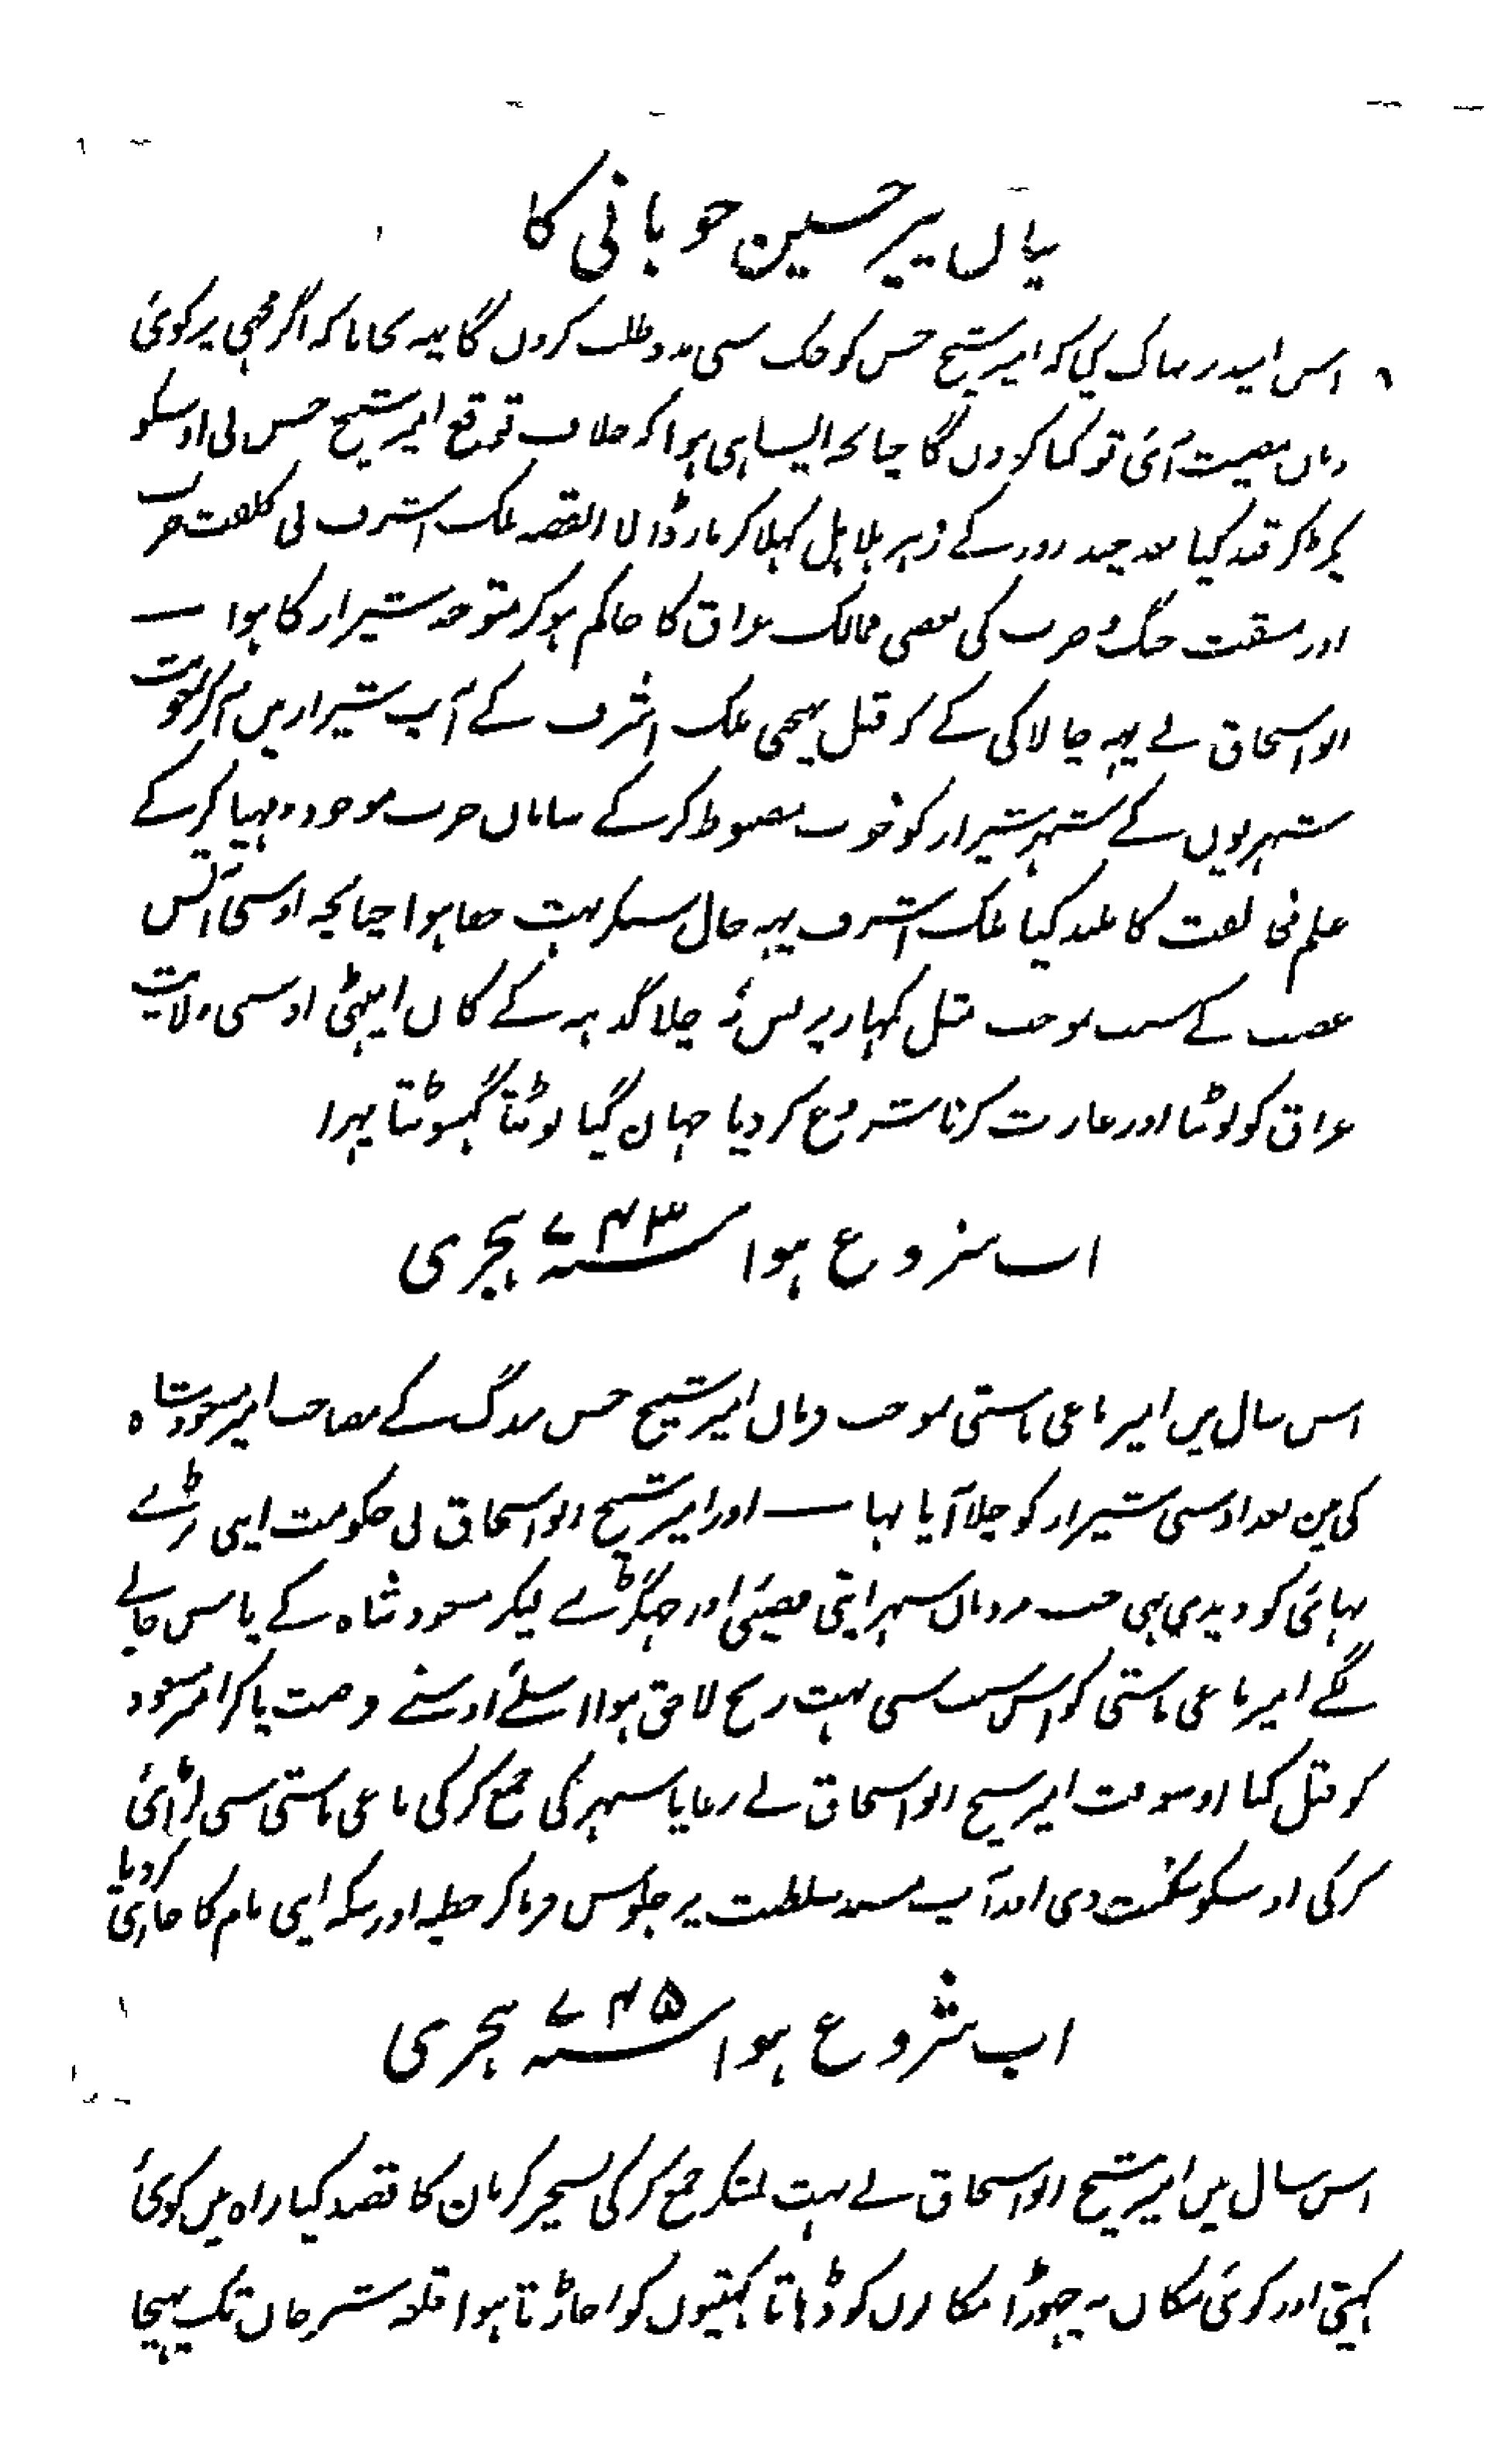 بیان پیر حسین چوبانی کا
اس امید پر بہاگ گیا کہ امیر شیخ حسن کوچک سی مدد طلب کروں گا یہہ نجانا کہ اگر مجہی پر کوئی
وہاں مصیبت آئی تو کیا کروں گا چنانچہ ایسا ہی ہوا کہ خلاف توقع امیر شیخ حسن نی اوسکو
پکڑ کر قید کیا بعد چند روز کے زہر ہلاہل کہلا کر مار ڈالا القصہ ملک اشرف نی کلفت حرب
اور مشقت جنگ و حرب کی بعضی ممالک عراق کا حاکم ہو کر متوجہ شیراز کا ہوا —
ابو اسحاق نے یہہ چالاکی کے کہ قبل پہنچی ملک اشرف کے آپ شیراز میں آ کر
شہریوں کے شہر شیراز کو خوب مضبوط کر کے سامان حرب موجود و مہیا کر کے
علم مخالفت کا بلند کیا ملک اشرف یہہ حال سنکر بہت خفا ہوا چنانچہ اوسی آتش
غضب کے سبب بموجب مثل کہار پر بس نہ چلا گدہہ کے کان اینٹہی اوسی ولایت
عراق کو لوٹنا اور غارت کرنا شروع کر دیا جہان گیا لوٹتا گہسوٹتا پہرا
اب شروع ہوا سنہ ۷۴۳ ہجری
اس سال میں امیر باغی باستی بموجب فرمان امیر شیخ حسن بزرگ کے مصاحب امیر مسعود شاہ
کی میں بغداد سی شیراز کو چلا آیا تہا — اور امیر شیخ ابو اسحاق نی حکومت اپنی بڑے
بہائی کو دیدی تہی جب مردمان شہر اپنی قضیئی اور جہگڑے لیکر مسعود شاہ کے پاس جانے
لگے امیر باغی باستی کو اس سبب سی بہت رنج لاحق ہوا اسلئے اوسنے فرصت پا کر امیر مسعود
کو قتل کیا اوسوقت امیر شیخ ابو اسحاق نے رعایا شہر کی جمع کر کی باغی باستی سی لڑائی
کر کی اوسکو شکست دی اور آپ مسند سلطنت پر جلوس فرما کر خطبہ اور سکہ اپنی نام کا جاری کر دیا
اب شروع ہوا سنہ ۷۴۵ ہجری
اس سال میں امیر شیخ ابو اسحاق نے بہت لشکر جمع کر کی تسخیر کرمان کا قصد کیا راہ میں کوئی
کہیتی اور کوئی مکان نہ چہوڑا مکانوں کو ڈہاتا کہیتیوں کو اجاڑتا ہوا قلعہ شیرجان تک پہنچا